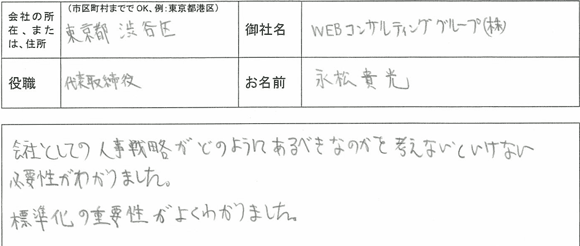 会社の所在、または、住所
(市区町村まででOK、例：東京都港区)
東京都 渋谷区
御社名
WEBコンサルティンググループ(株)
役職
代表取締役
お名前
永松貴光
会社としての人事戦略がどのようにあるべきなのかを考えないといけない
必要性がわかりました。
標準化の重要性がよくわかりました。